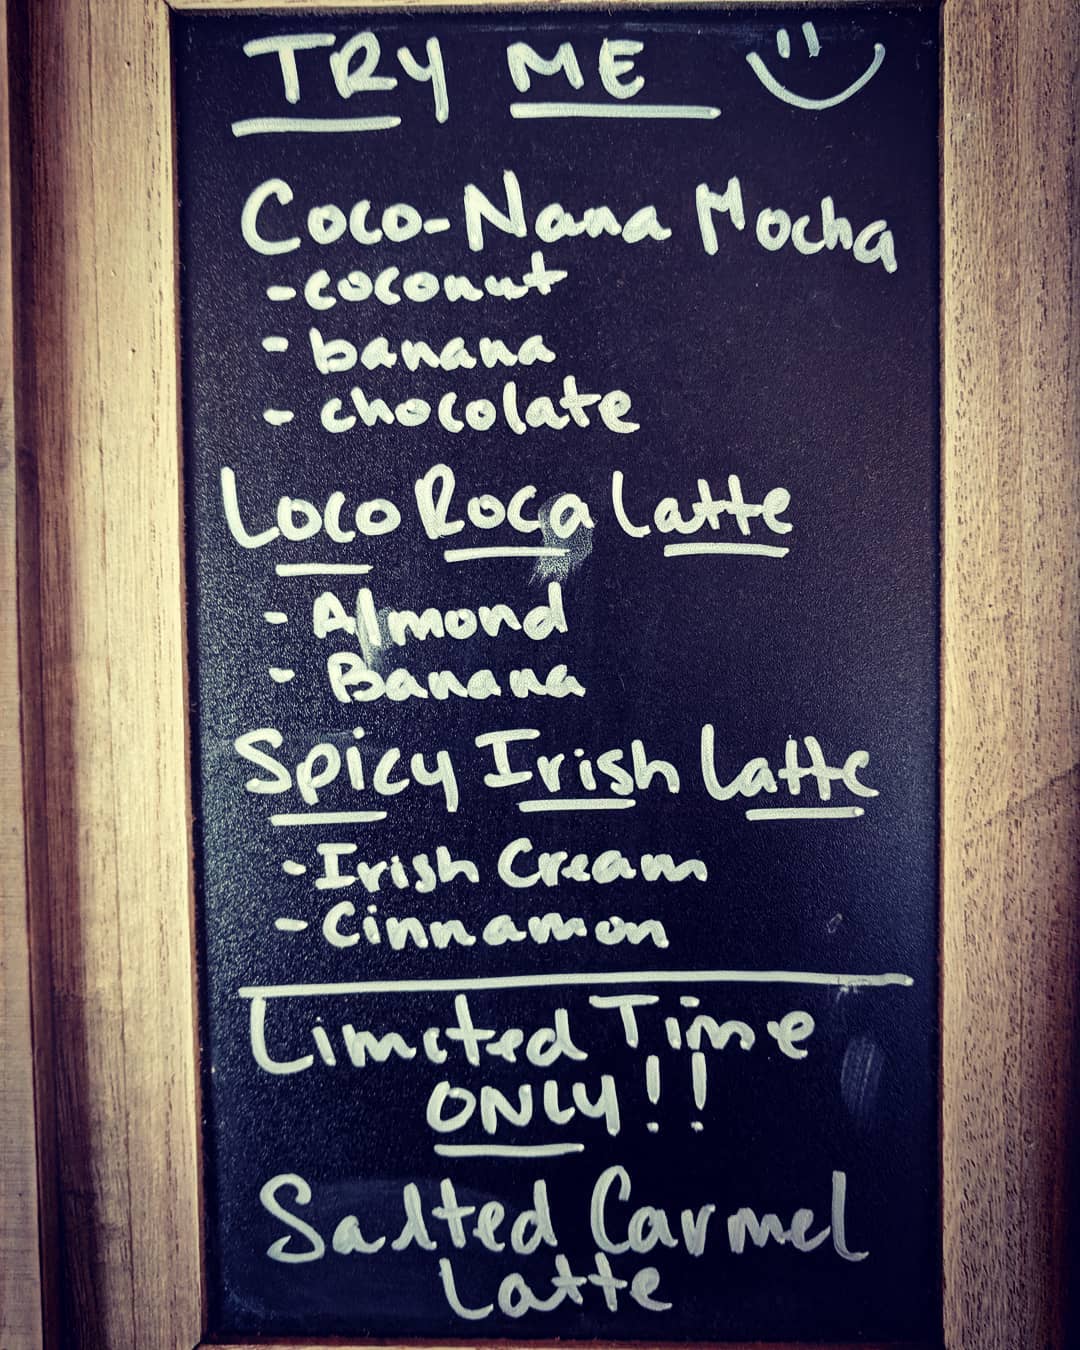 TRY ME
Coco-Nana Mocha
- coconut
- banana
- chocolate
Loco Roca Latte
- Almond
- Banana
Spicy Irish Latte
- Irish Cream
- Cinnamon
Limited Time
ONLY!!
Salted Carmel
Latte